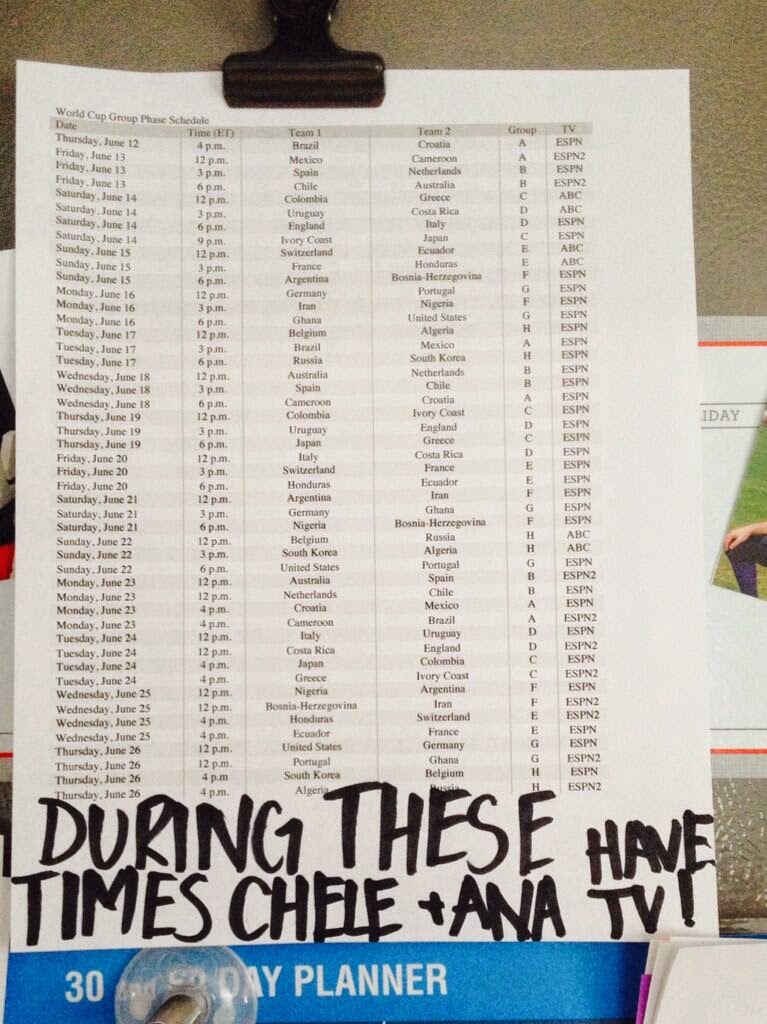 World Cup Group Phase Schedule
Date Time (ET) Team 1 Team 2 Group TV
Thursday, June 12 4 p.m. Brazil Croatia A ESPN
Friday, June 13 12 p.m. Mexico Cameroon A ESPN2
Friday, June 13 3 p.m. Spain Netherlands B ESPN
Friday, June 13 6 p.m. Chile Australia B ESPN2
Saturday, June 14 12 p.m. Colombia Greece C ABC
Saturday, June 14 3 p.m. Uruguay Costa Rica D ABC
Saturday, June 14 6 p.m. England Italy D ESPN
Saturday, June 14 9 p.m. Ivory Coast Japan C ESPN
Sunday, June 15 12 p.m. Switzerland Ecuador E ABC
Sunday, June 15 3 p.m. France Honduras E ABC
Sunday, June 15 6 p.m. Argentina Bosnia-Herzegovina F ESPN
Monday, June 16 12 p.m. Germany Portugal G ESPN
Monday, June 16 3 p.m. Iran Nigeria F ESPN
Monday, June 16 6 p.m. Ghana United States G ESPN
Tuesday, June 17 12 p.m. Belgium Algeria H ESPN
Tuesday, June 17 3 p.m. Brazil Mexico A ESPN
Tuesday, June 17 6 p.m. Russia South Korea H ESPN
Wednesday, June 18 12 p.m. Australia Netherlands B ESPN
Wednesday, June 18 3 p.m. Spain Chile B ESPN
Wednesday, June 18 6 p.m. Cameroon Croatia A ESPN
Thursday, June 19 12 p.m. Colombia Ivory Coast C ESPN
Thursday, June 19 3 p.m. Uruguay England D ESPN
Thursday, June 19 6 p.m. Japan Greece C ESPN
Friday, June 20 12 p.m. Italy Costa Rica D ESPN
Friday, June 20 3 p.m. Switzerland France E ESPN
Friday, June 20 6 p.m. Honduras Ecuador E ESPN
Saturday, June 21 12 p.m. Argentina Iran F ESPN
Saturday, June 21 3 p.m. Germany Ghana G ESPN
Saturday, June 21 6 p.m. Nigeria Bosnia-Herzegovina F ESPN
Sunday, June 22 12 p.m. Belgium Russia H ABC
Sunday, June 22 3 p.m. South Korea Algeria H ABC
Sunday, June 22 6 p.m. United States Portugal G ESPN
Monday, June 23 12 p.m. Australia Spain B ESPN2
Monday, June 23 12 p.m. Netherlands Chile B ESPN
Monday, June 23 4 p.m. Croatia Mexico A ESPN
Monday, June 23 4 p.m. Cameroon Brazil A ESPN2
Tuesday, June 24 12 p.m. Italy Uruguay D ESPN
Tuesday, June 24 12 p.m. Costa Rica England D ESPN2
Tuesday, June 24 4 p.m. Japan Colombia C ESPN
Tuesday, June 24 4 p.m. Greece Ivory Coast C ESPN2
Wednesday, June 25 12 p.m. Nigeria Argentina F ESPN
Wednesday, June 25 12 p.m. Bosnia-Herzegovina Iran F ESPN2
Wednesday, June 25 4 p.m. Honduras Switzerland E ESPN2
Wednesday, June 25 4 p.m. Ecuador France E ESPN
Thursday, June 26 12 p.m. United States Germany G ESPN
Thursday, June 26 12 p.m. Portugal Ghana G ESPN2
Thursday, June 26 4 p.m South Korea Belgium H ESPN
Thursday, June 26 4 p.m. Algeria Russia H ESPN2
DURING THESE HAVE
TIMES CHELE + ANA TV!
IDAY
30 AY PLANNER